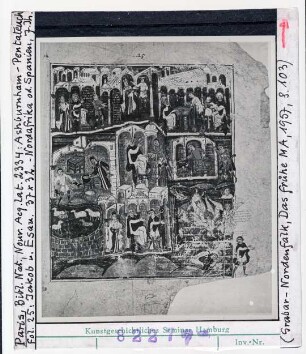 Paris, Bibl. Nat., Nouv. Acq. lat. 2334: Ashburnham-Pentateuch
Fol. 25: Jakob u. Esau. 37 x 32 - Nordafrika od. Spanien, 7. Jh.
25
(Grabar-Nordenfalk, Das frühe MA, 1957, S. 103)
Kunstgeschichtliches Seminar Hamburg
Inv.-Nr.